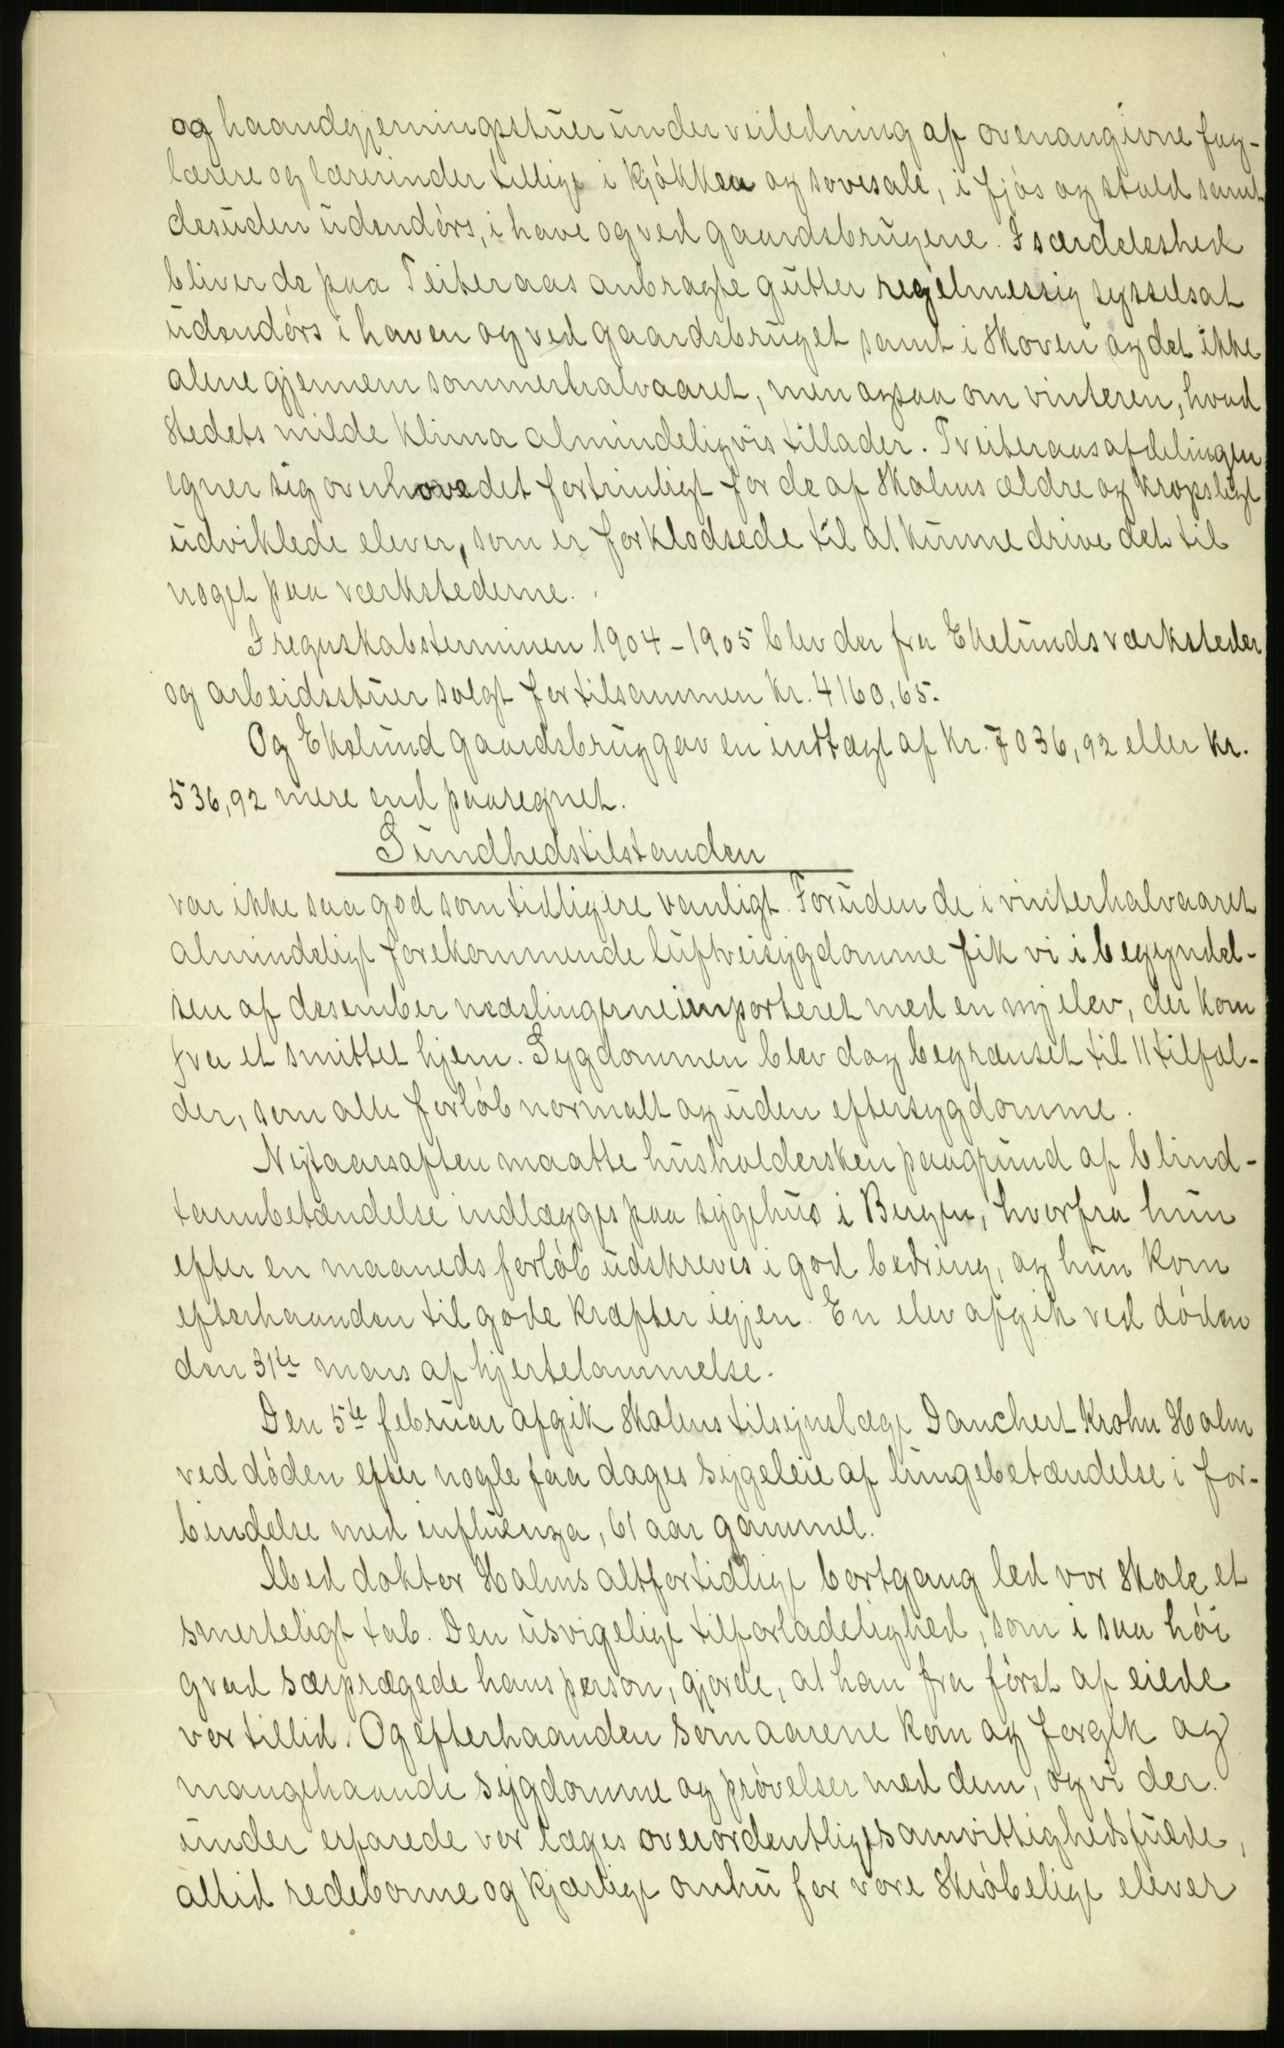 og haandgjerningsstuer under veiledning af ovenangivne fag-
lærere og lærerinder tillige i kjøkken og sovesale, i fjøs og stald samt
desuden udendørs, i have og ved gaardsbrugene. I særdeleshed
bliver de paa Tveiteraas anbragte gutter regelmessig sysselsat
udendørs i haven og ved gaardsbruget samt i skoven og det ikke
alene gjennem sommerhalvaaret, men ogsaa om vinteren, hvad
stedets milde klima almindeligvis tillader. Tveiteraasafdelingen
egner sig overhovedet fortrinligt for de af skolens ældre og kropsligt
udviklede elever, som er forklodsede til at kunne drive det til
noget paa værkstederne.
I regnskabsterminen 1904-1905 blev der fra Ekelunds værksteder
og arbeidsstuer solgt for tilsammen kr. 4160,65.
Og Ekelund gaardsbrug gav en indtægt af kr. 7036,92 eller kr.
536,92 mere end paaregnet.
Sundhedstilstanden
var ikke saa god som tidligere vanligt. Foruden de i vinterhalvaaret
almindeligt forekommende luftveisygdomme fik vi i begyndel-
sen af desember medslingerne importeret med en ny elev, der kom
fra et smittet hjem. Sygdommen blev dog begrænset til 11 tilfæl-
der, som alle forløb normalt og uden eftersygdomme.
Nytaarsaften maatte husholdersken paagrund af blind-
tarmbetændelse indlægges paa sygehus i Bergen, hvorfra hun
efter en maaneds forløb udskreves i god bedring, og hun kom
efterhaanden til gode kræfter igjen. En elev afgik ved døden
den 31te mars af hjertelammelse.
Den 5te februar afgik skolens tilsynslæge Danchert Krohn Holm
ved døden efter nogle faa dages sygeleie af lungebetændelse i for-
bindelse med influenza, 61 aar gammel.
Med doktor Holms altfortidlige bortgang led vor skole et
smerteligt tab. Den usvigelige tilforladelighed, som i saa høi
grad særprægede hans person, gjorde, at han fra først af eiede
vor tillid. Og efterhaanden som aarene kom og forgik og
mangehaande sygdomme og prøvelser med dem, og vi der.
under erfarede vor læges overordentlige samvittighedsfulde,
altid redebonne og kjærlige omhu for vore skrøbelige elever